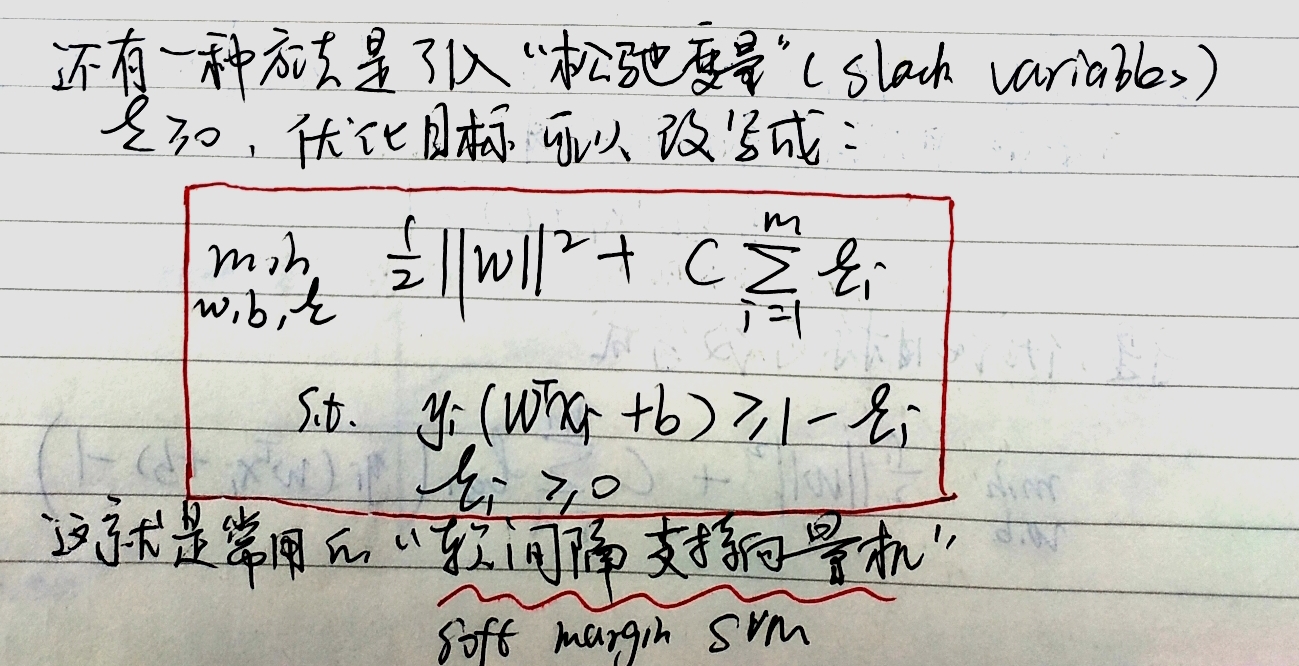 还有一种方法是引入“松弛变量”(slack variables)
ξ≥0,优化目标可以改写成:
min 1/2 ||w||² + C Σ ξi
w,b,ξ i=1 m
s.t. yi(wᵀxi+b)≥1-ξi
ξi≥0
这就是常用的“软间隔支持向量机”
soft margin SVM